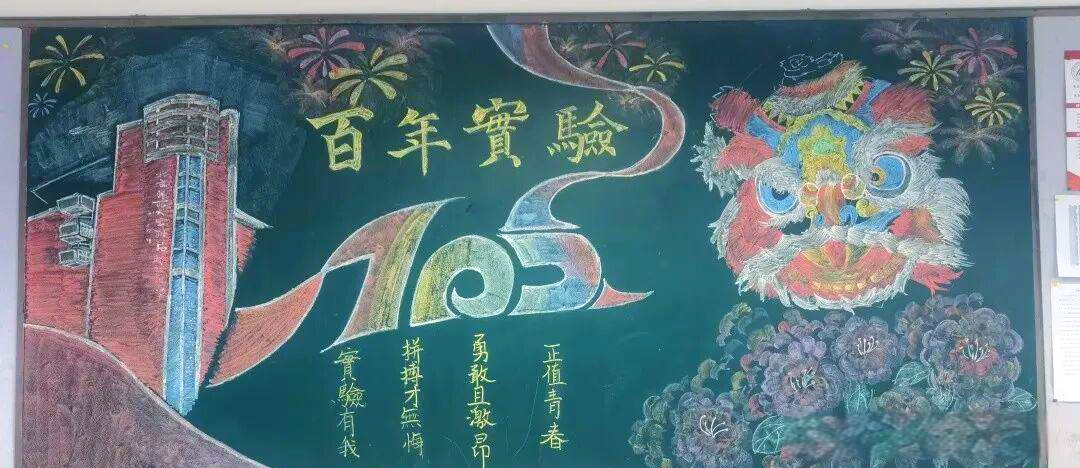 百年實驗
105
正值青春
勇敢且激昂
拼搏才無悔
實驗有我